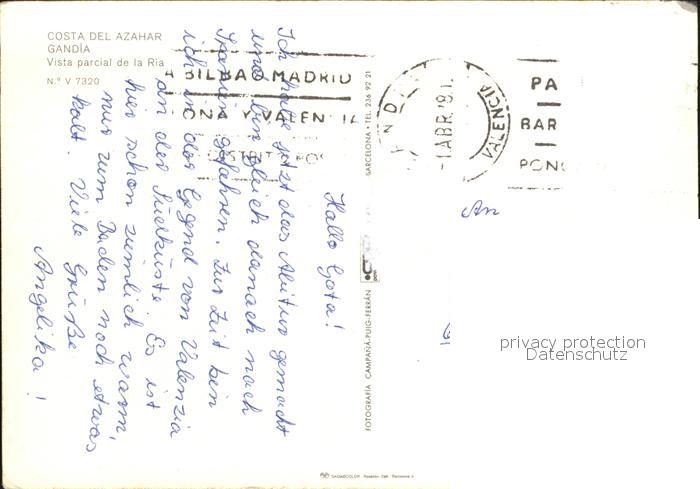 COSTA DEL AZAHAR
GANDÍA
Vista parcial de la Ria
N.° V 7320
Hallo Gota!
Ich habe jetzt das Abitur gemacht
und bin gleich danach nach
Spanien gefahren. Zur Zeit bin
ich in der Gegend von Valenzia
an der Südküste. Es ist
hier schon ziemlich warm,
nur zum Baden noch etwas
kalt. Viele Grüße
Angelika!
A BILBAO MADRID
ONA Y VALEN
1 ABR. 81
VALENCIA
PA
BAR
PONG
An
BARCELONA • TEL. 236 92 21
FOTOGRAFÍA CAMPAÑÁ-PUIG-FERRÁN
privacy protection
Datenschutz